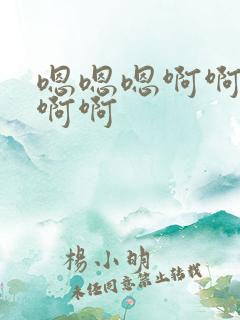 嗯嗯嗯啊啊
啊啊
楊小萌
未经同意禁止转载